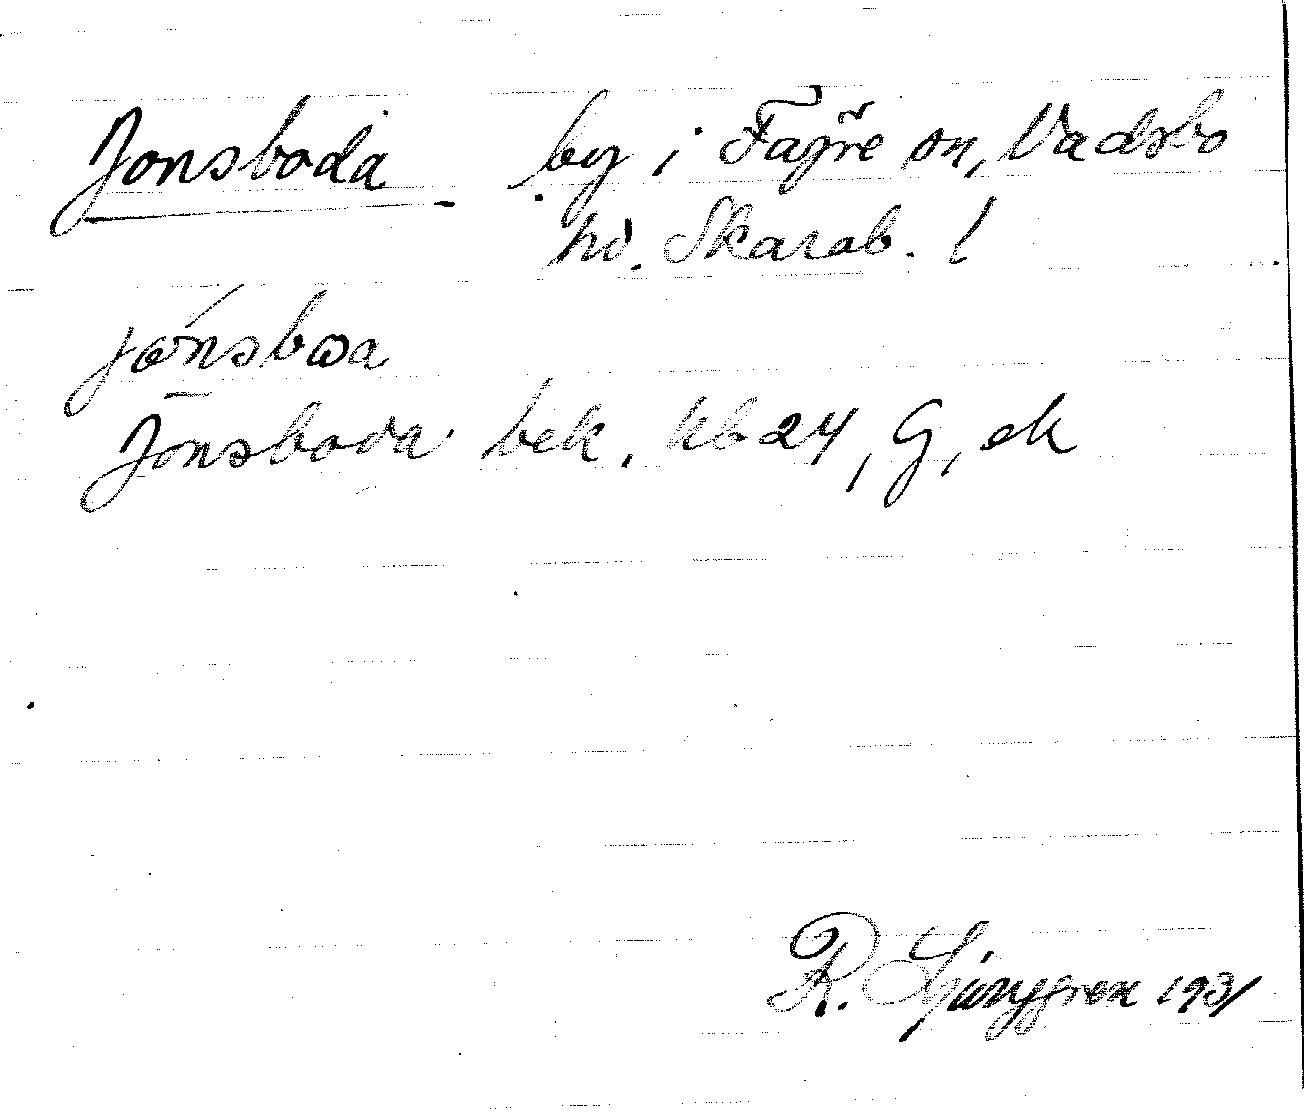 Jonsboda by i Fägre sn, Vadsbo
hd. Skarab. l
Jonsboda bek. kb 24, G, ek
R. Ljunggren 1931